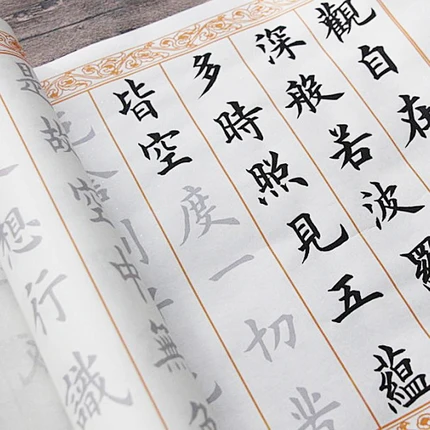 觀自在
深般若波羅
多時照見五蘊
皆空度一切苦
故空中無色
想行識